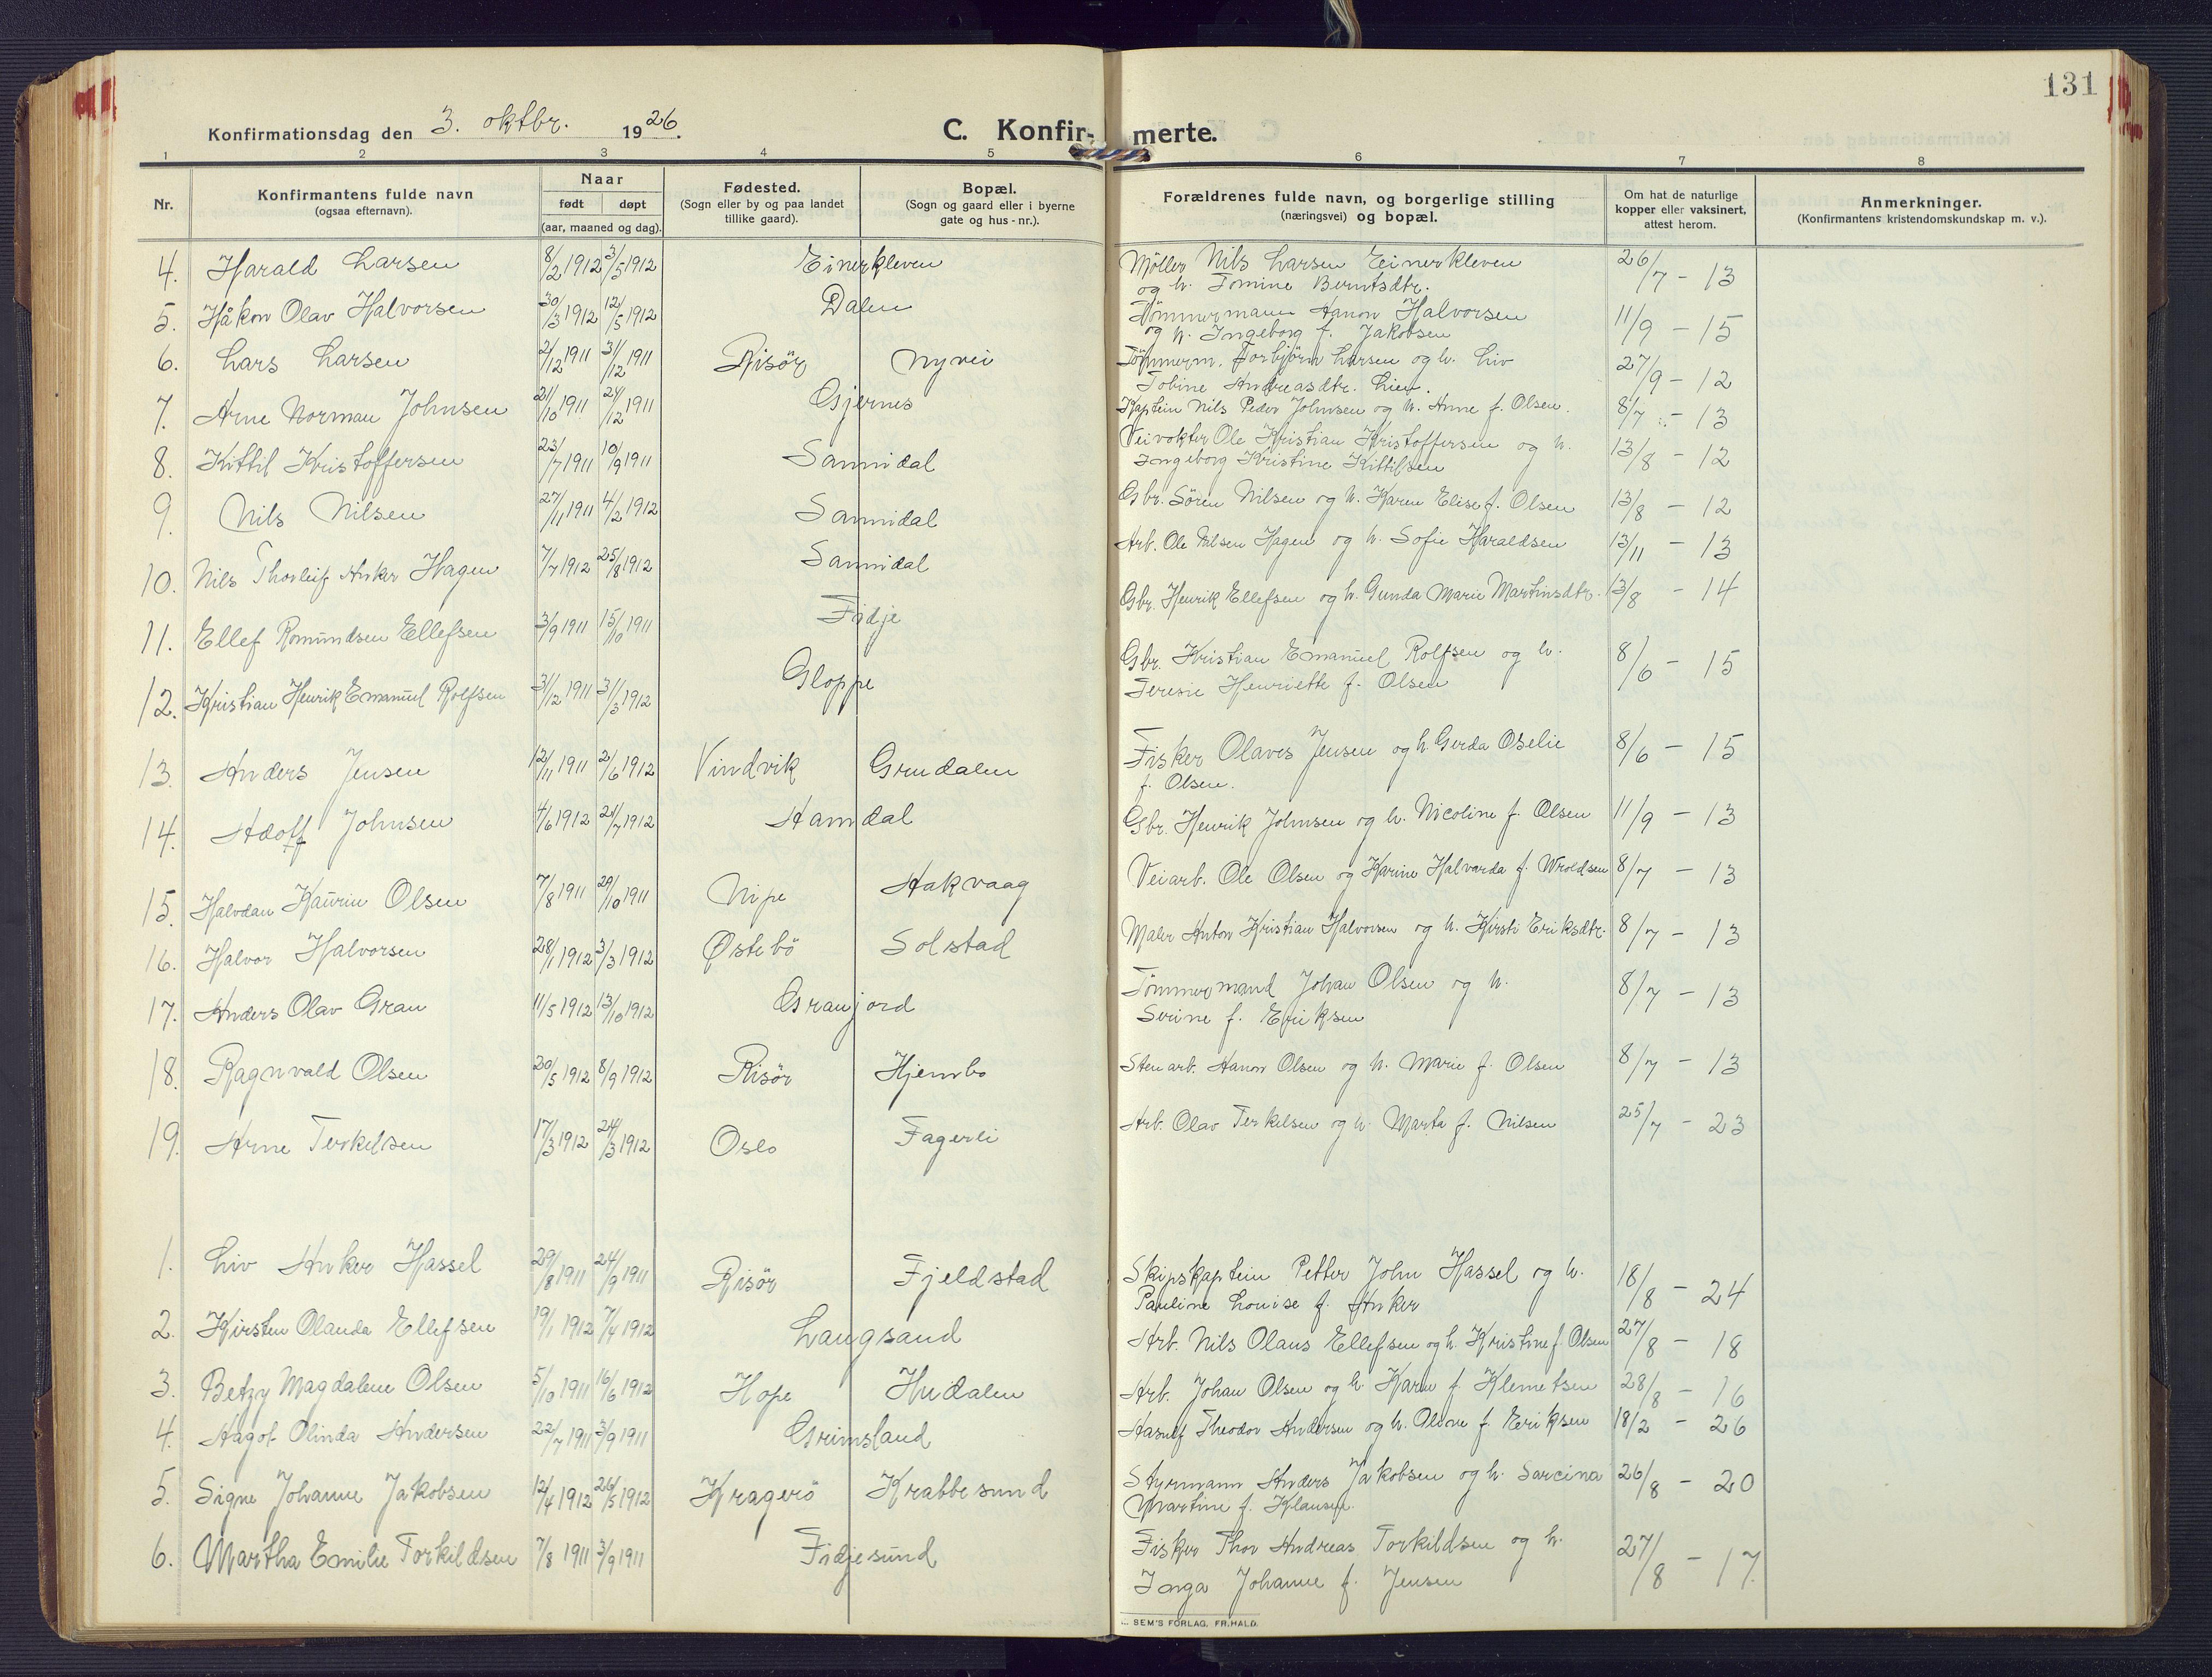 131
Konfirmationsdag den 3. oktbr. 1926.
C. Konfir- merte.
1 2 3 4 5 6 7 8
Nr.
Konfirmantens fulde navn
(ogsaa efternavn).
Naar
født døpt
(aar, maaned og dag).
Fødested.
(Sogn eller by og paa landet
tillike gaard).
Bopæl.
(Sogn og gaard eller i byerne
gate og hus - nr.).
Forældrenes fulde navn, og borgerlige stilling
(næringsvei) og bopæl.
Om hat de naturlige
kopper eller vaksinert,
attest herom.
Anmerkninger.
(Konfirmantens kristendomskundskap m. v.).
4. Harald Larsen 8/2 1912 3/5 1912 Einerkleven Møller Nils Larsen Einerkleven 26/7 - 13
og h. Tomine Berntsdtr.
5. Håkon Olav Halvorsen 30/3 1912 12/5 1912 Dalen Tømmermann Hanon Halvorsen 11/9 - 15
og h. Ingeborg f. Jakobsen
6. Lars Larsen 2/12 1911 31/12 1911 Risör Nyvei Tømmerm. Torbjørn Larsen og h. Liv 27/9 - 12
Tobine Andreasdtr. Lien.
7. Arne Norman Johnsen 21/10 1911 24/12 1911 Gjernes Kaptein Nils Peder Johnsen og h. Anne f. Olsen. 8/7 - 13
8. Kittil Kristoffersen 23/7 1911 10/9 1911 Sannidal Veivokter Ole Kristian Kristoffersen og h. 13/8 - 12
Ingeborg Kristine Kittilsen
9. Nils Nilsen 27/11 1911 4/2 1912 Sannidal Gbr. Sören Nilsen og h. Karen Elise f. Olsen 13/8 - 12
10. Nils Thorleif Anker Hagen 7/7 1912 25/8 1912 Sannidal Arb. Ole Nilsen Hagen og h. Sofie Haraldsen 13/11 - 13
11. Ellef Romundsen Ellefsen 3/9 1911 15/10 1911 Fidje Gbr. Henrik Ellefsen og h. Gunda Marie Martinsdtr. 13/8 - 14
12. Kristian Henrik Emanuel Rolfsen 31/12 1911 31/3 1912 Gloppe Gbr. Kristian Emanuel Rolfsen og h. 8/6 - 15
Teresie Henriette f. Olsen
13. Anders Jensen 12/11 1911 2/6 1912 Vindvik Grudalen Fisker Olaves Jensen og h. Gerda Oselie 8/6 - 15
f. Olsen.
14. Adoff Johnsen 4/6 1912 21/7 1912 Hamdal Gbr. Henrik Johnsen og h. Nicoline f. Olsen 11/9 - 13
15. Halvdan Kaurin Olsen 7/8 1911 29/10 1911 Nipe Hakvaag Veiarb. Ole Olsen og Karine Halvarda f. Wroldsen 8/7 - 13
16. Halvor Halvorsen 28/1 1912 3/3 1912 Østebö Solstad Maler Anton Kristian Halvorsen og h. Kirsti Eriksdtr. 8/7 - 13
17. Anders Olav Gran 11/5 1912 13/10 1912 Granjord Tömmermand Johan Olsen og h. 8/7 - 13
Serine f. Eriksen
18. Ragnvald Olsen 30/5 1912 8/9 1912 Risör Hjembo Stenarb. Hanon Olsen og h. Marie f. Olsen 8/7 - 13
19. Arne Terkelsen 17/3 1912 24/3 1912 Oslo Fagerli Arb. Olav Terkelsen og h. Marta f. Nilsen 25/7 - 23
1. Liv Anker Hassel 29/8 1911 24/9 1911 Risör Fjeldstad Skipskaptein Petter John Hassel og h. 18/8 - 24
Pauline Louise f. Anker
2. Kirsten Olanda Ellefsen 19/1 1912 7/4 1912 Langsand Arb. Nils Olaus Ellefsen og h. Kristine f. Olsen 27/8 - 18
3. Betzy Magdalene Olsen 5/10 1911 16/6 1912 Hope Hudalen Arb. Johan Olsen og h. Karen f. Klemetsen 28/8 - 16
4. Hagot Olinda Andersen 22/7 1911 3/9 1911 Grimsland Theodor Andersen og h. Oline f. Eriksen 18/2 - 26
5. Signe Johanne Jakobsen 12/4 1912 26/5 1912 Kragerö Krabbesund Styrmann Anders Jakobsen og h. Sarcina 26/8 - 20
Martine f. Klausen.
6. Martha Emilie Torkildsen 7/8 1911 3/9 1911 Fidjesund Fisker Thor Andreas Torkildsen og h. 27/8 - 17.
Inga Johanne f. Jensen
SEM'S FORLAG, FR.HALD.